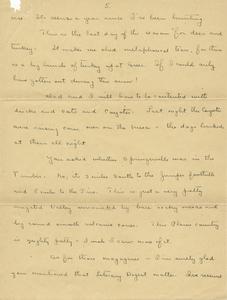 5.
me. It seems a year since I've been hunting
This is the last day of the season for deer and
turkey. It makes me shed metaphorical tears, for there
is a big bunch of turkey up at Greer. If I could only
have gotten out during this snow!
And I will have to be contented with
ducks and cats and Coyotes. Last night the Coyotes
were raising cain over on the mesa - the dogs barked
at them all night
You asked whether Springerville was in the
Timber. No, its 3 miles South to the juniper foothills
and 8 miles to the Pine. This is just a very pretty
irrigated Valley surrounded by bare rocky mesas and
big round smooth volcanic cones. This Plains country
is mighty pretty - I wish I saw more of it.
As for those magazines - I'm surely glad
you mentioned that Literary Digest matter. I've